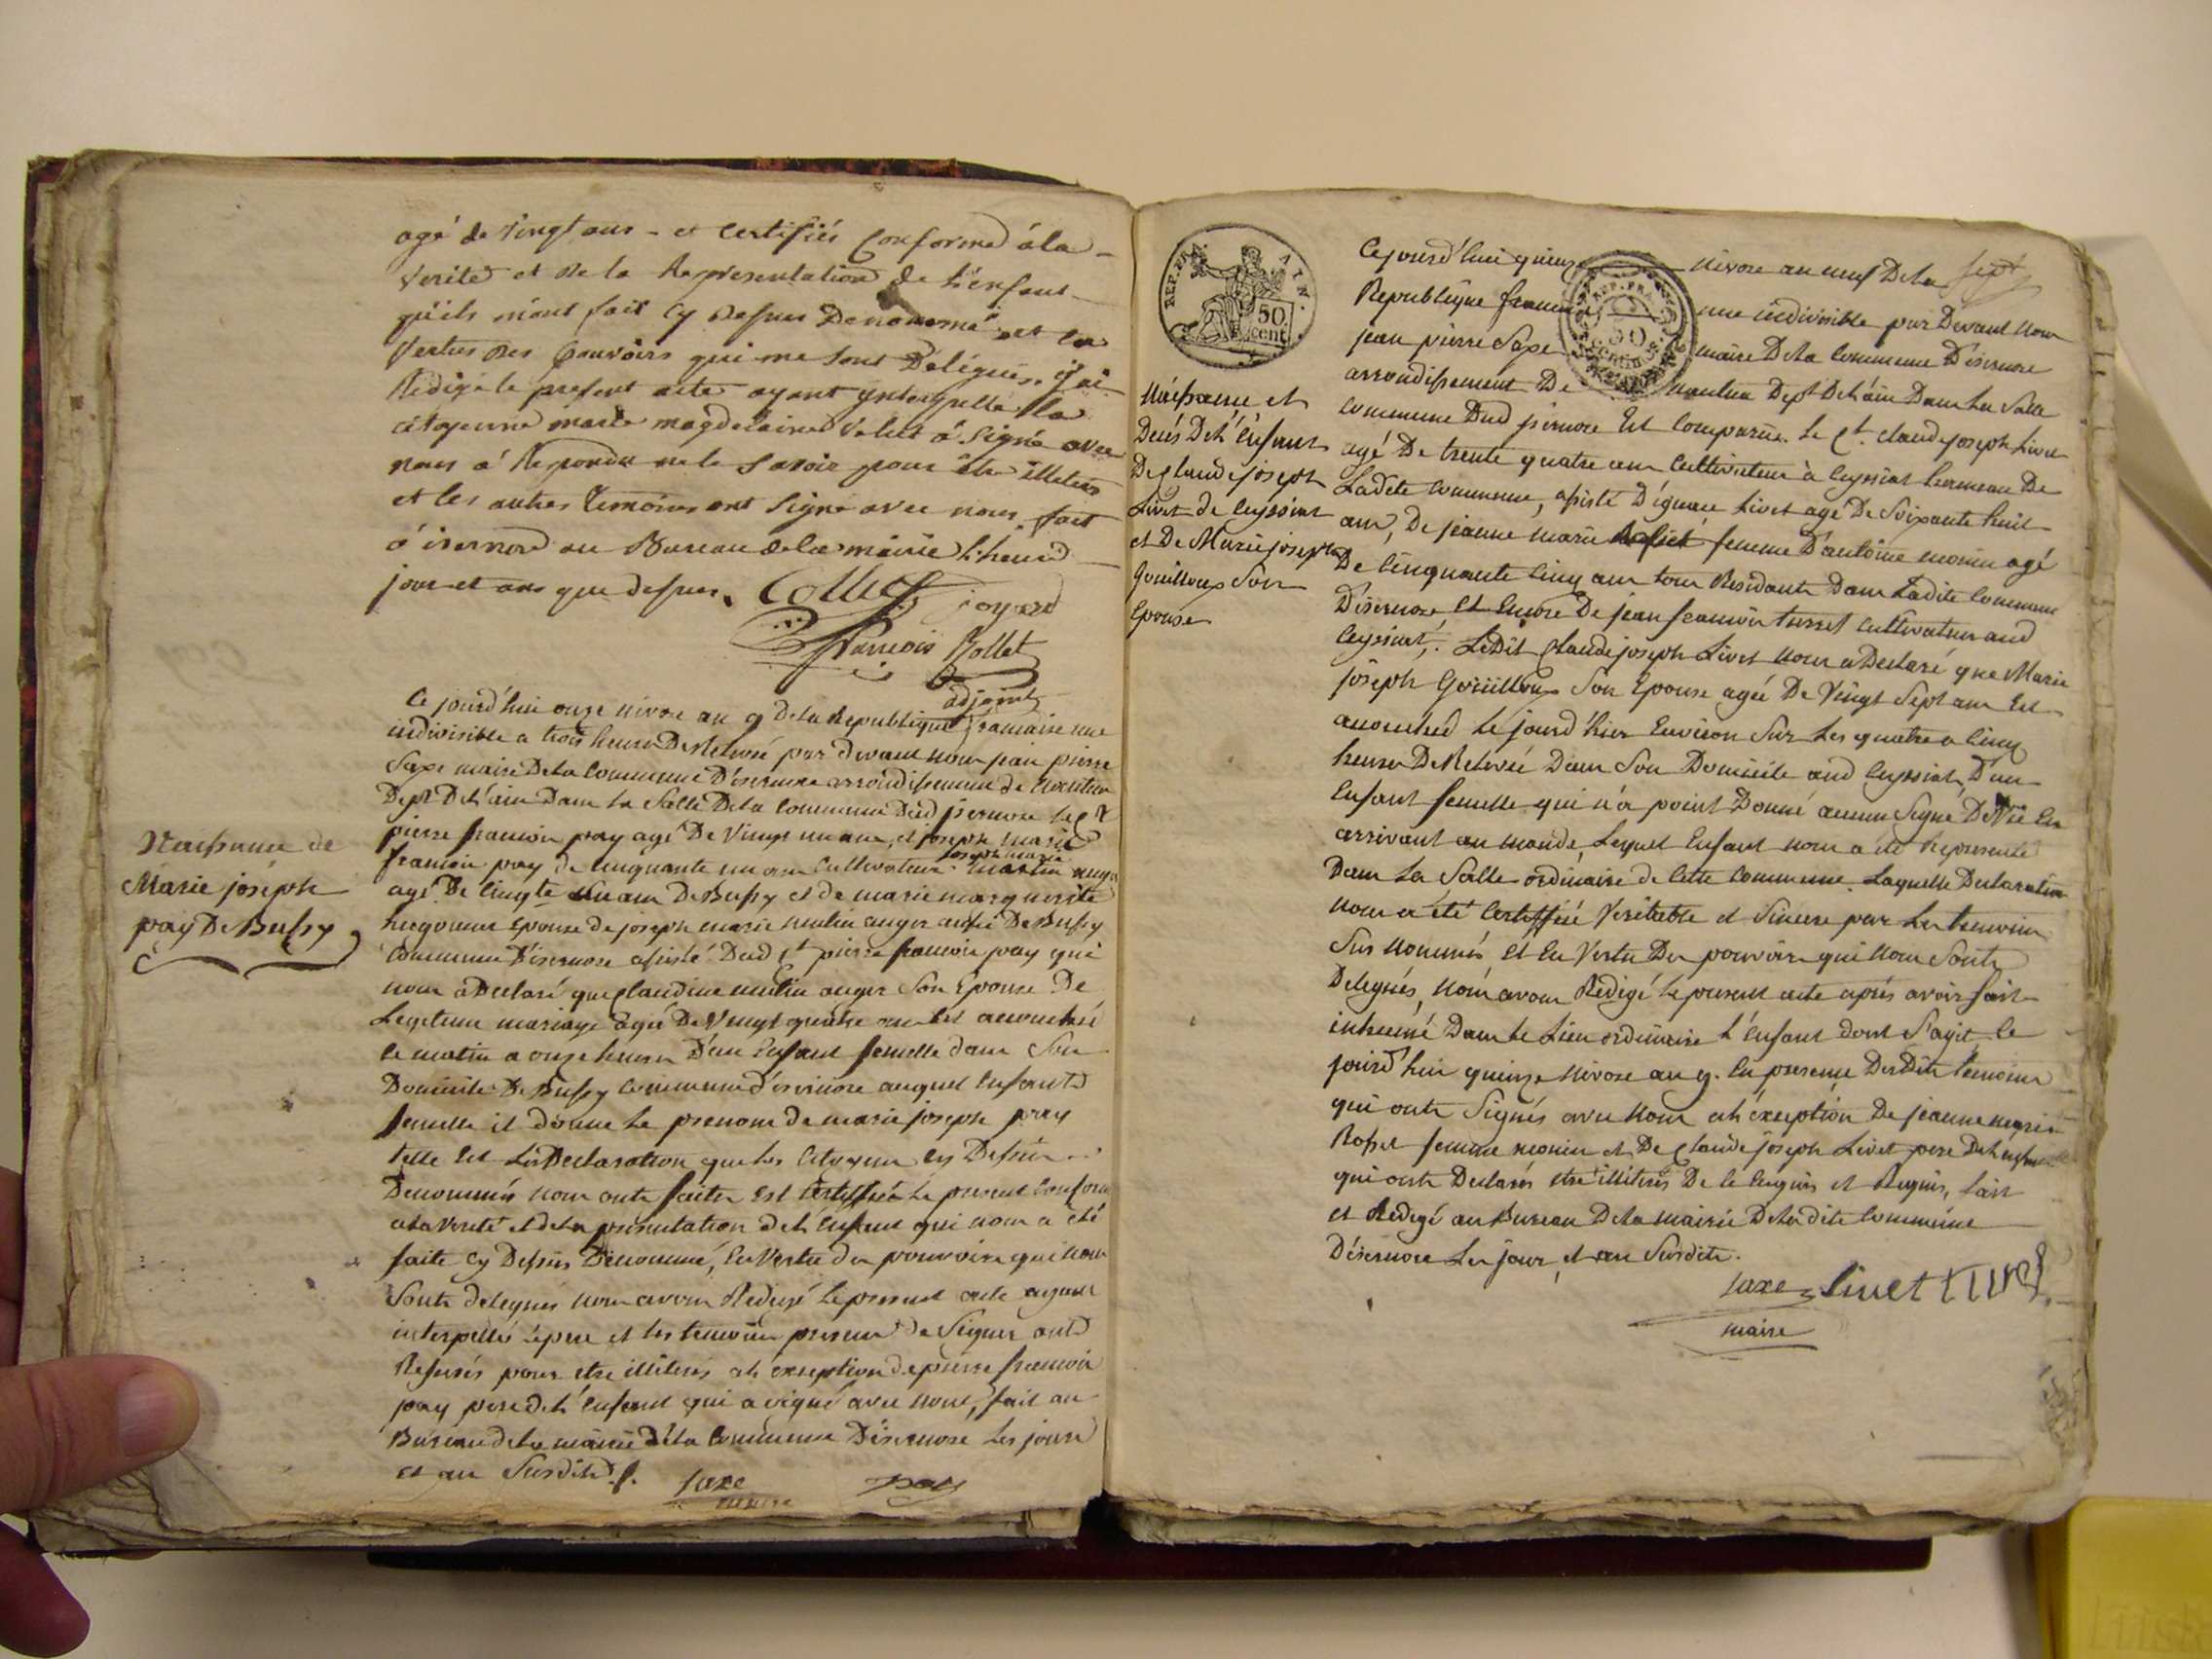 agé de vingt ans - et certifiés conforme á la
verité et de la Representation de L'enfant
qu'ils m'ont fait cy dessus Denommé et en
vertus des pouvoirs qui me sont Délégués, j'ai
Redigé le present acte ayant ynterpellé la
citoyenne marie magdelaine volet á signé avec
nous á Repondu ne le savoir pour être illeteré
et les autres temoins ont signé avec nous fait
á isernore au Bureau de la mairie L'heure
jour et ans que dessus. Collet joyard
françois Rollet
adjoint
Ce jourd'hui onze nivose an 9 De la Republique francaise une
indivisible a trois heures De Relevée par devant nous jean pierre
Saxe maire De la Commune D'isernore arrondissement de Nantua
Dept De L'ain Dans la Salle De la Commune Dud isernore le Ct
pierre francois pray agé De vingt un ans, et joseph marie
francois pray de cinquante un ans Cultivateur joseph marie
agé De cinqte un ans De Bussy et de marie marguerite
hugonnet Epouse de joseph marie mulin auger aussi De Bussy
Commune D'isernore assisté Dud Ct pierre francois pray qui
nous a Declaré que Claudine mulin auger Son Epouse De
Legitime mariage agée De Vingt quatre ans Est accouchée
le matin a onze heures D'un Enfant femelle dans Son
Domicile De Bussy Commune d'isernore auquel Enfant
femelle il donne le prenom de marie joseph pray
telle Est La Declaration que les Citoyens cy Dessus
Denommés nous onts faites Est Certiffiée le present Conforme
a la verité et de la presentation de L'Enfant qui nous a été
faite cy Dessus Denommé, En Vertu des pouvoirs qui nous
Sonts delegués nous avons Redigé le present acte ayant
interpellés le pere et les temoins presents de Signer ont
Refusés pour etre illiterés a L'exception de pierre francois
pray pere de L'enfant qui a signé avec nous, fait au
Bureau de la mairie de la Commune D'isernore Les jours
et an Susdits. Saxe pray
maire
Naissance de
Marie joseph
pray De Bussy
REP. FRA.
50
cent.
Naissance et
Decés De L'Enfant
De Claude joseph
Livet de Ceyssiat
et De Marie joseph
Gouilloux Son
Epouse
sept
Ce jourd'hui quinze nivose an neuf De la
Republique francaise une indivisible par Devant nous
jean pierre Saxe maire De la Commune D'isernore
arrondissement De nantua Dept De L'ain Dans La Salle
Commune Dud isernore Est Comparu. Le Ct. Claude joseph Livet
agé De trente quatre ans Cultivateur à Ceyssiat hameau De
Ladite Commune, assisté D'ignace Livet agé De Soixante huit
ans, De jeanne marie Rosset femme D'antoine monin agé
De Cinquante cinq ans tous Residants Dans Ladite Commune
D'isernore, Et Encore De jean francois turrel Cultivateur aud
Ceyssiat,. Ledit Claude joseph Livet nous a Declaré que Marie
joseph Gouilloux Son Epouse agée De Vingt Sept ans Est
accouchée le jourd'hier Environ Sur Les quatre a Cinq
heures De Relevée Dans Son Domicile aud Ceyssiat, D'un
Enfant femelle qui n'a point Donné aucun Signe De Vie En
arrivant au monde, Lequel Enfant nous a été Representé
Dans La Salle ordinaire de Cette Commune. Laquelle Declaration
nous a été Certiffiée Veritable et Sincere par Les temoins
Sus nommés Et En Vertu Des pouvoirs qui nous Sonts
Delegués, nous avons Redigé le present acte aprés avoir fait
inhumé Dans le Lieu ordinaire L'Enfant dont S'agit ce
jourd'hui quinze nivose an 9. En presence Desdits temoins
qui onts Signés avec nous a L'éxception De jeanne marie
Rosset femme monin et De Claude joseph Livet pere De L'enfant
qui onts Declarés etre illiterés De le Enquis et Requis, fait
et Redigé au Bureau De la mairie De Ladite Commune
D'isernore Les jour, et an Susdits.
Saxe Livet turrel
maire